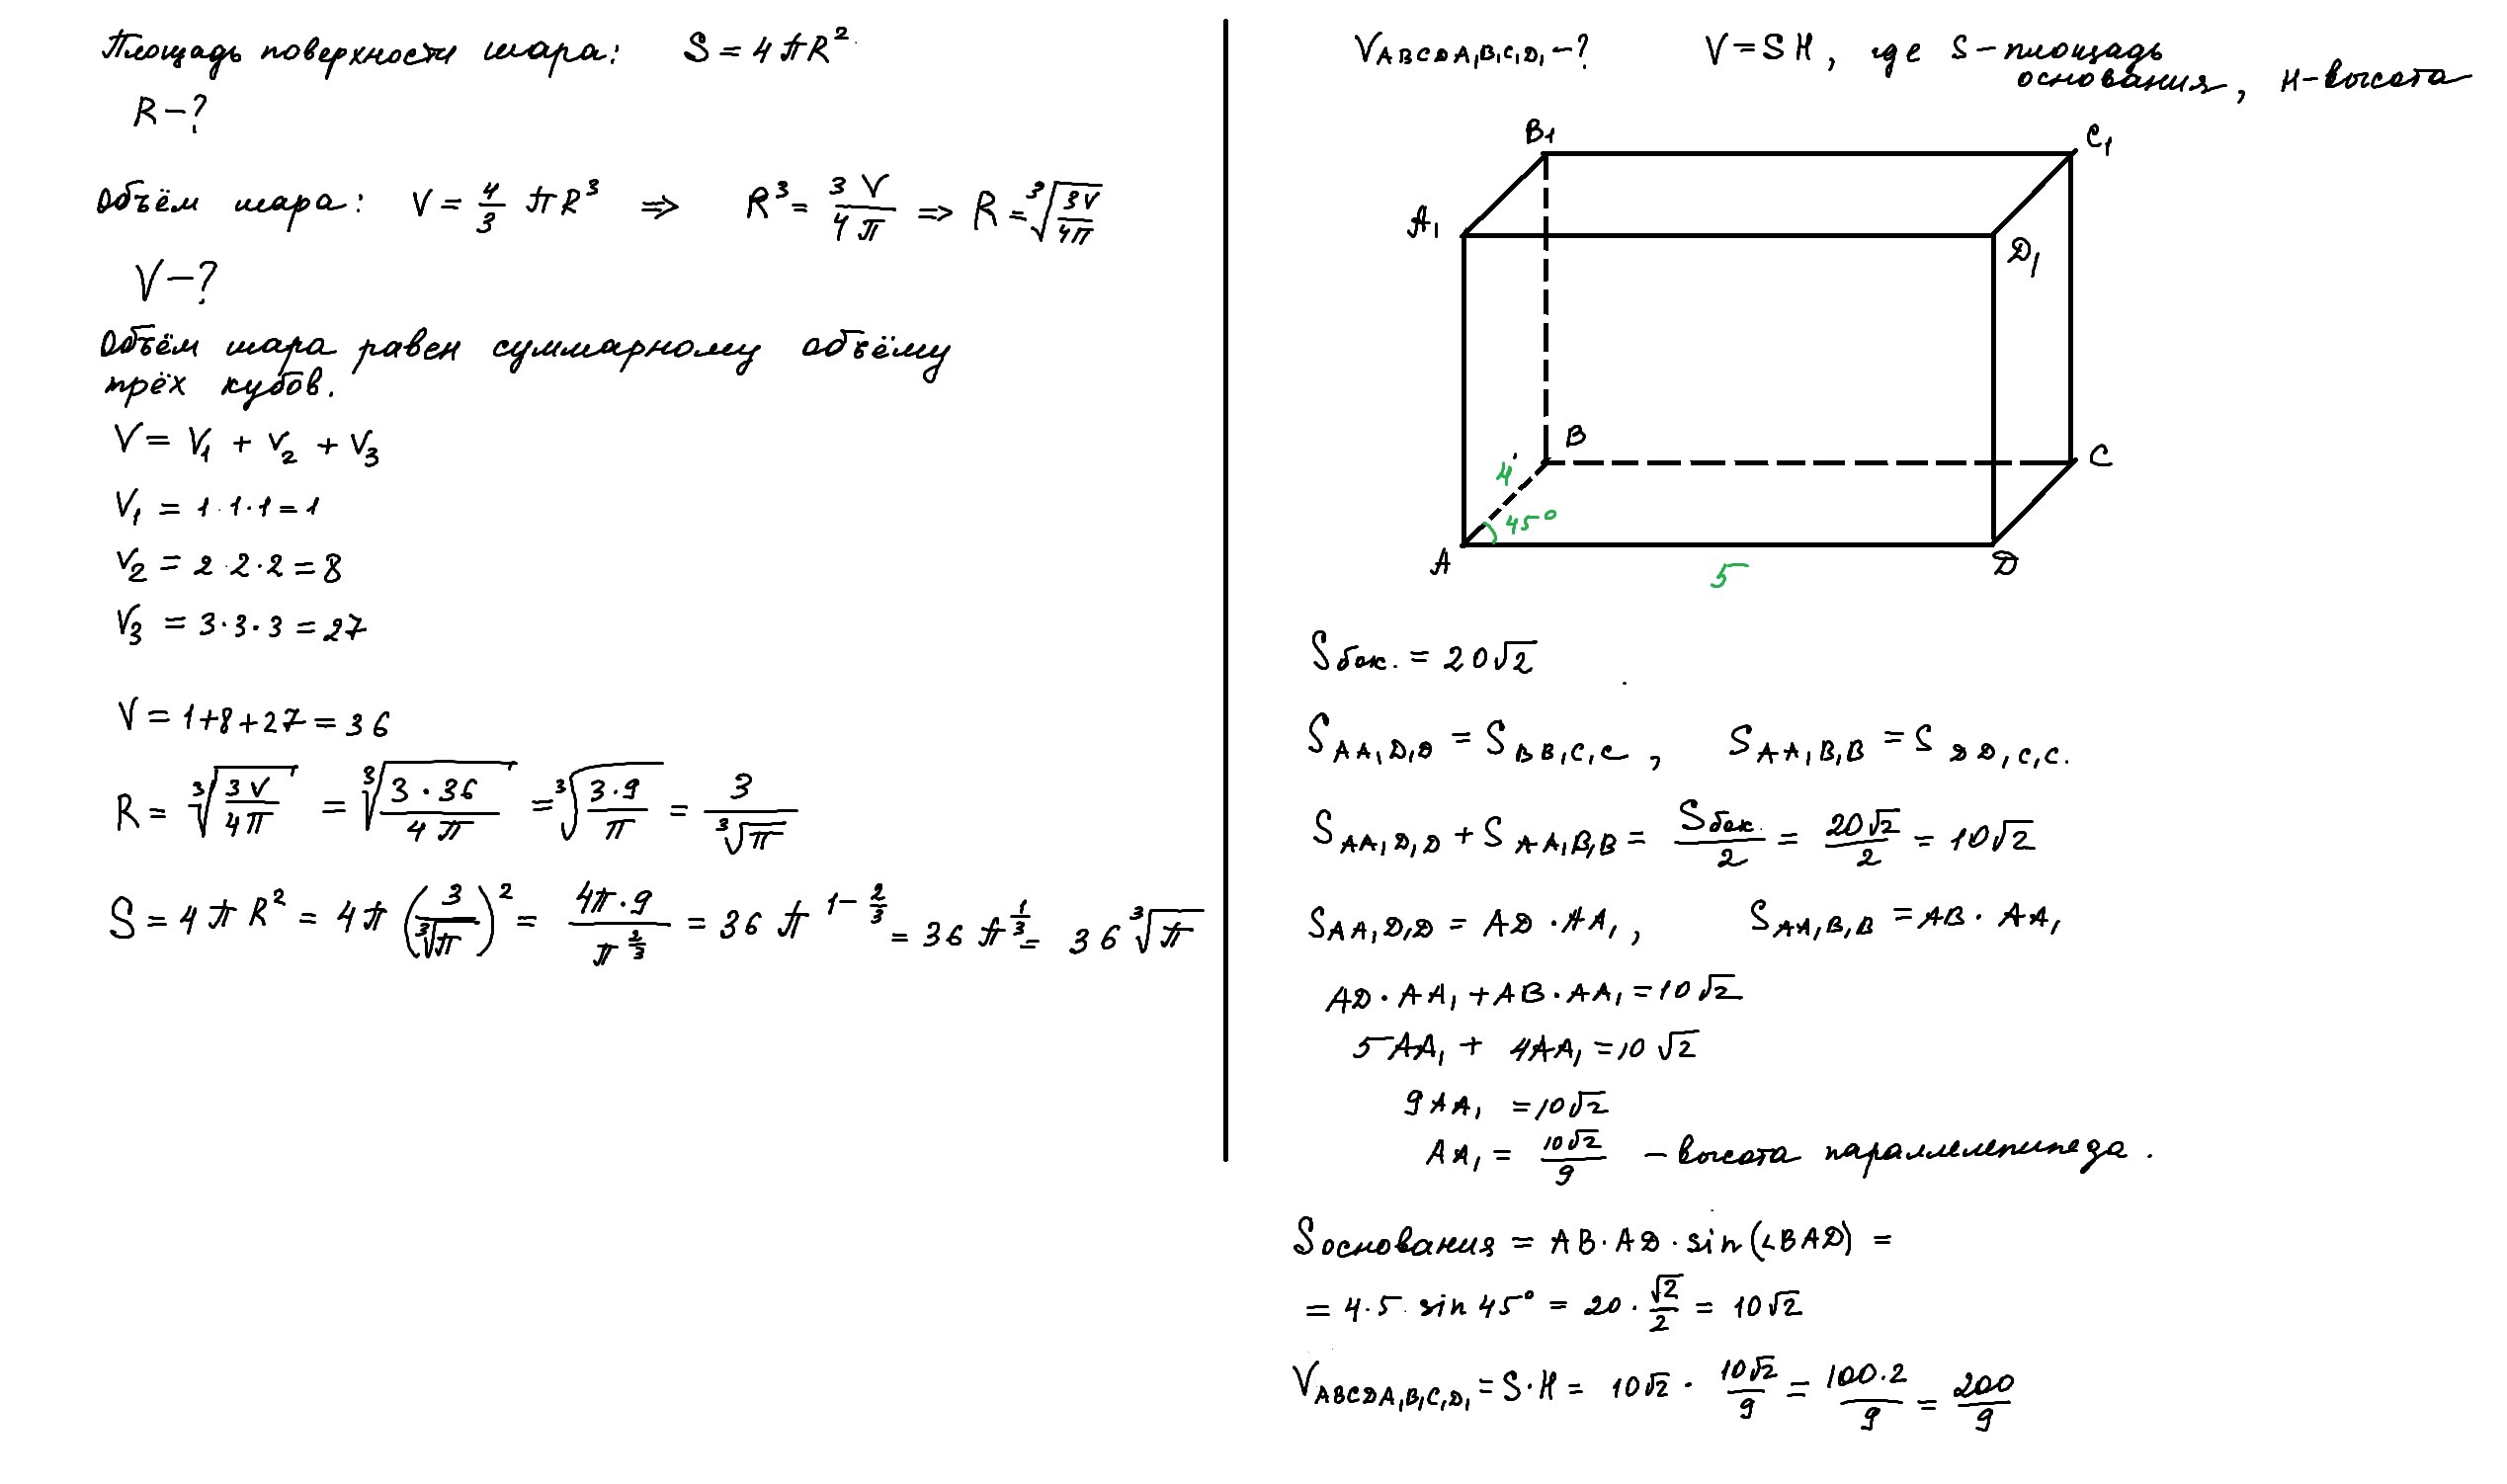 Площадь поверхности шара: S = 4πR²
R – ?
Объём шара: V = 4/3 πR³ ⇒ R³ = 3V/4π ⇒ R = ∛(3V/4π)
V – ?
Объём шара равен суммарному объёму
трёх кубов.
V = V₁ + V₂ + V₃
V₁ = 1·1·1 = 1
V₂ = 2·2·2 = 8
V₃ = 3·3·3 = 27
V = 1+8+27 = 36
R = ∛(3V/4π) = ∛(3·36/4π) = ∛(3·9/π) = 3/∛π
S = 4πR² = 4π(3/∛π)² = 4π·9/π^(2/3) = 36π^(1−2/3) = 36π^(1/3) = 36∛π
V ABCDA₁B₁C₁D₁ – ? V = SH, где S – площадь
основания, H – высота
B₁ C₁
A₁ D₁
B C
4
45°
A D
5
Sбок. = 20√2
S AA₁D₁D = S BB₁C₁C, S AA₁B₁B = S DD₁C₁C.
S AA₁D₁D + S AA₁B₁B = Sбок./2 = 20√2/2 = 10√2
S AA₁D₁D = AD·AA₁, S AA₁B₁B = AB·AA₁
AD·AA₁ + AB·AA₁ = 10√2
5AA₁ + 4AA₁ = 10√2
9AA₁ = 10√2
AA₁ = 10√2/9 – высота параллелепипеда.
Sоснования = AB·AD·sin(∠BAD) =
= 4·5·sin 45° = 20·√2/2 = 10√2
V ABCDA₁B₁C₁D₁ = S·H = 10√2·10√2/9 = 100·2/9 = 200/9